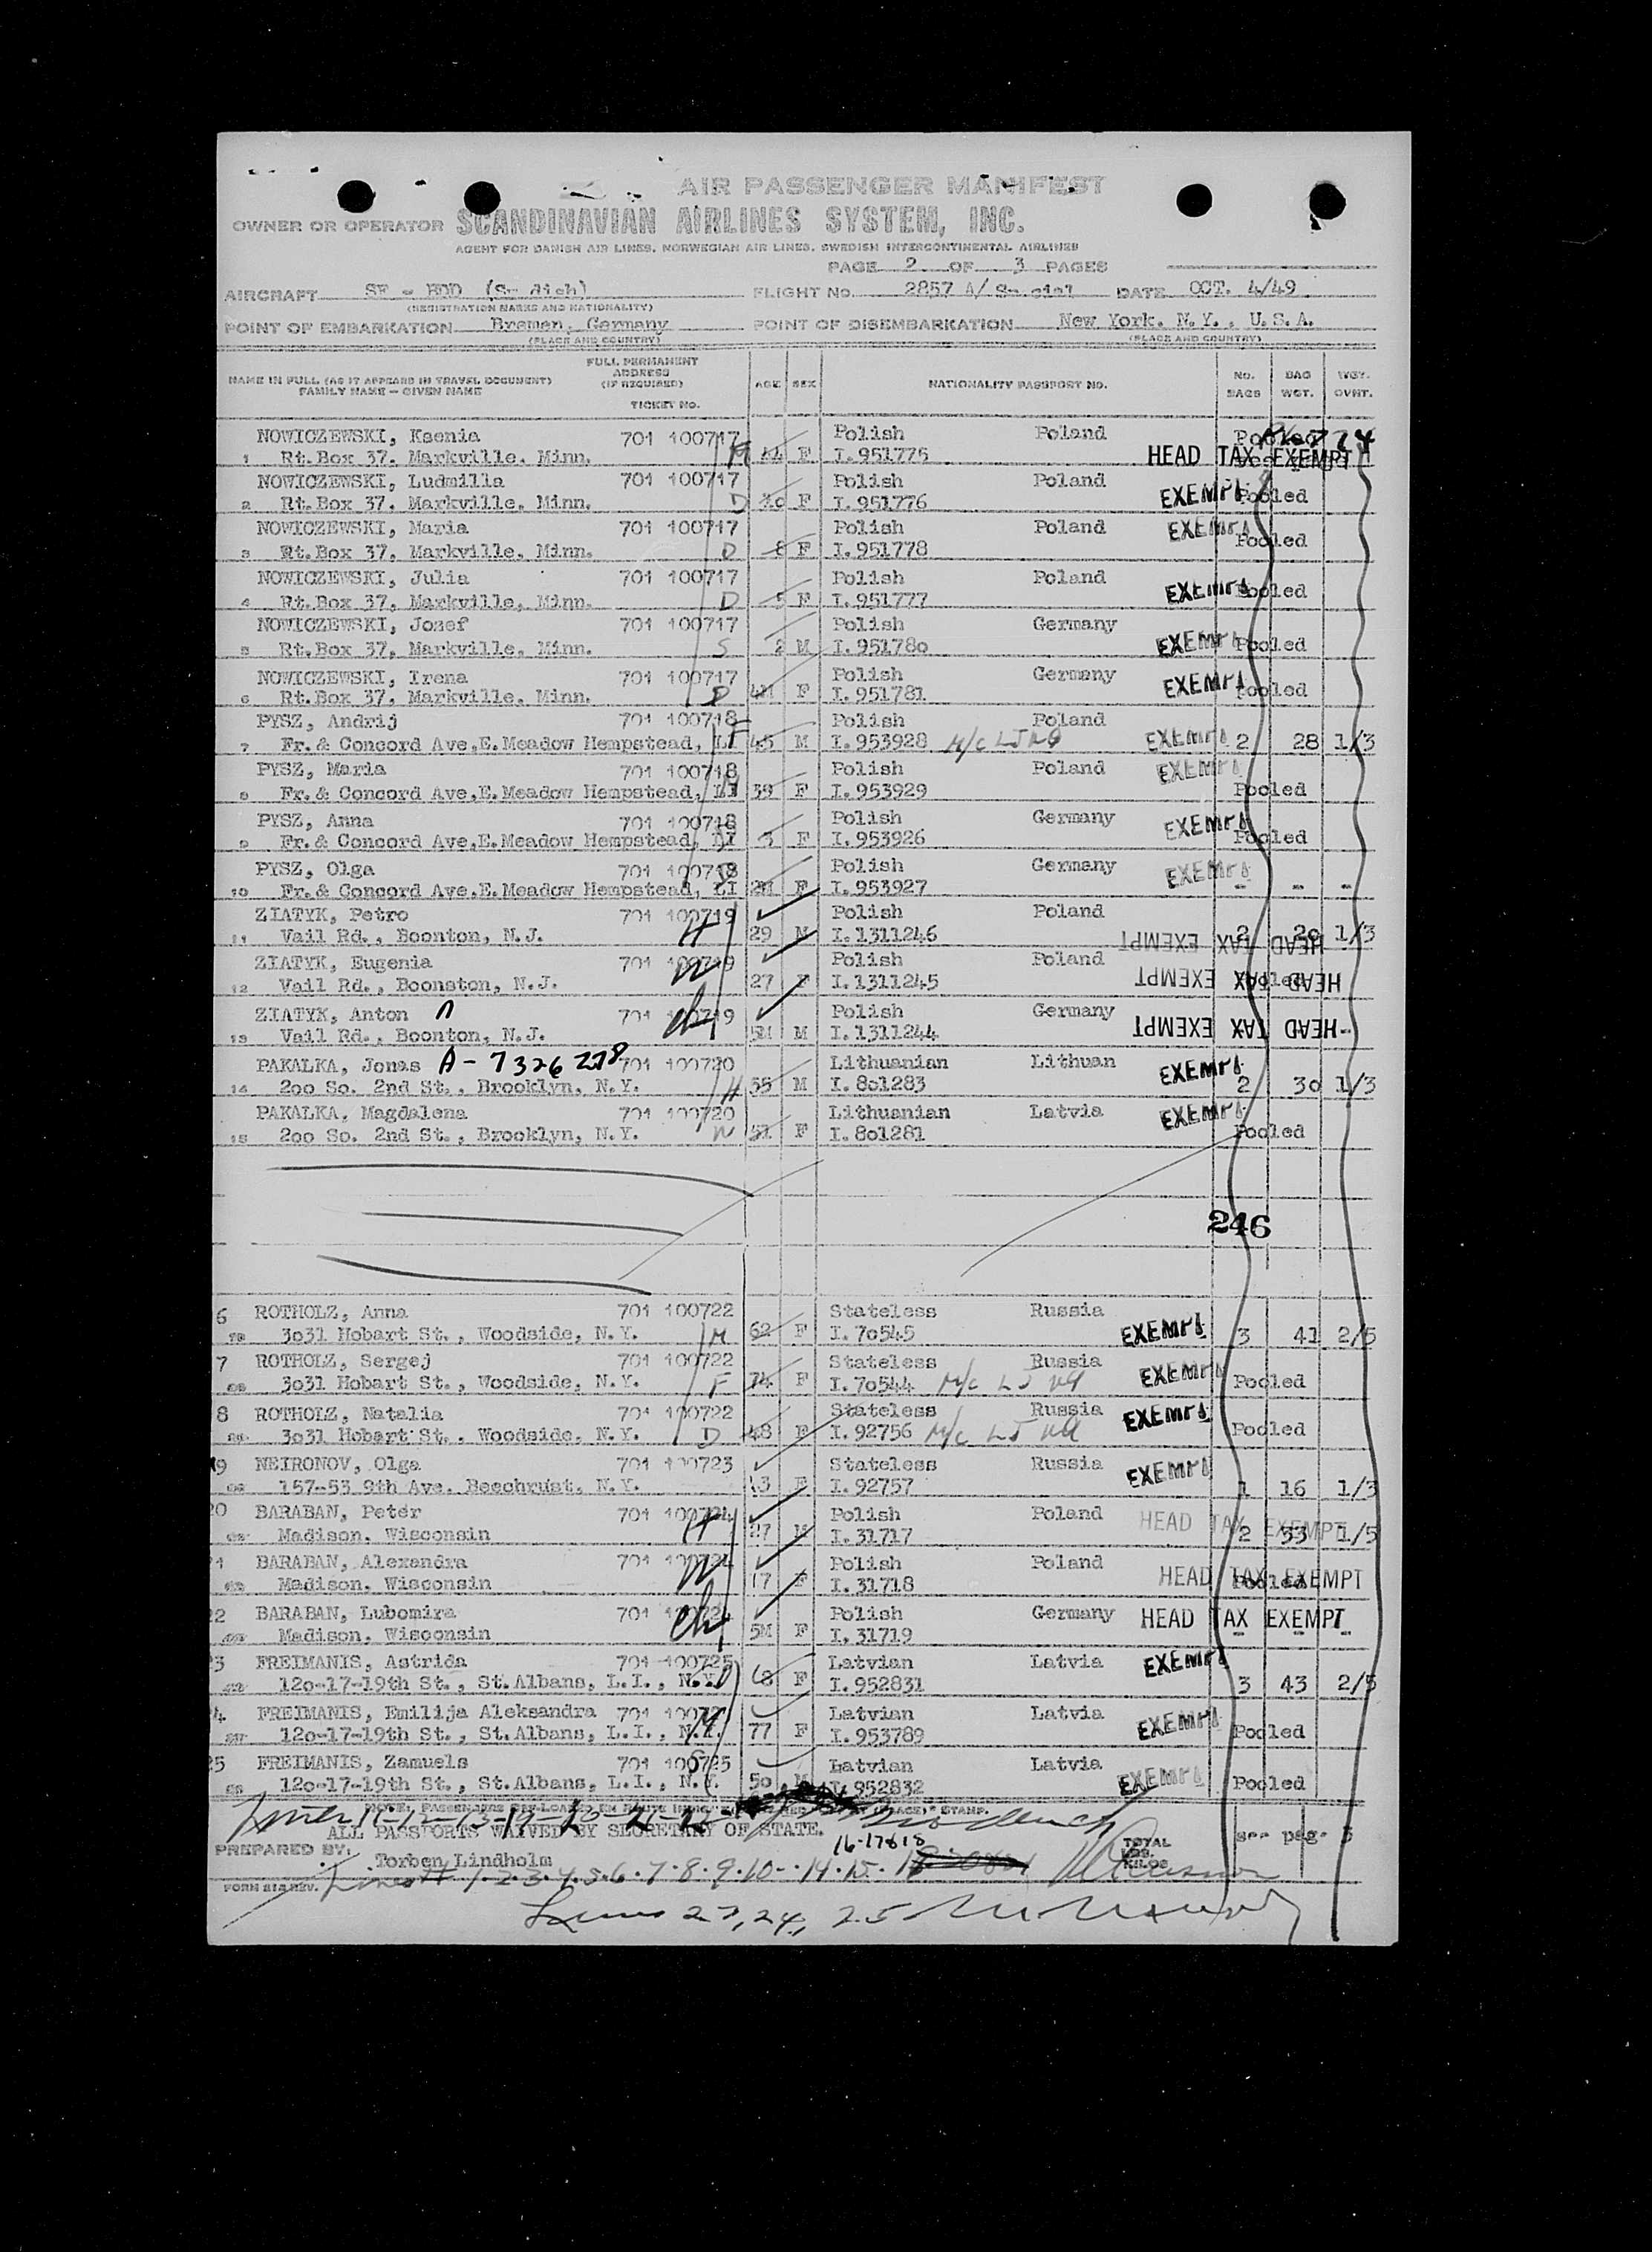 AIR PASSENGER MANIFEST
OWNER OR OPERATOR SCANDINAVIAN AIRLINES SYSTEM, INC.
AGENT FOR DANISH AIR LINES, NORWEGIAN AIR LINES, SWEDISH INTERCONTINENTAL AIRLINES
PAGE 2 OF 3 PAGES
AIRCRAFT FLIGHT No. 2857 A/ DATE OCT. 4/49
(REGISTRATION MARKS AND NATIONALITY)
POINT OF EMBARKATION Bremen, Germany POINT OF DISEMBARKATION New York, N.Y., U.S.A.
(PLACE AND COUNTRY) (PLACE AND COUNTRY)
NAME IN FULL (AS IT APPEARS IN TRAVEL DOCUMENT) FAMILY NAME – GIVEN NAME FULL PERMANENT ADDRESS (IF REQUIRED) TICKET NO. AGE SEX NATIONALITY PASSPORT NO. No. BAGS BAG WGT. WGT. OVHT.
NOWICZEWSKI, Ksenia 701 100717 Polish Poland
1 Rt.Box 37. Markville. Minn. M F I.951775 HEAD TAX EXEMPT
NOWICZEWSKI, Ludmilla 701 100717 Polish Poland
2 Rt.Box 37. Markville, Minn. D F I.951776 EXEMPT Pooled
NOWICZEWSKI, Maria 701 100717 Polish Poland EXEMPT
3 Rt.Box 37, Markville, Minn. D 8 F I.951778 Pooled
NOWICZEWSKI, Julia 701 100717 Polish Poland
4 Rt.Box 37, Markville, Minn. D 5 F I.951777 EXEMPT Pooled
NOWICZEWSKI, Jozef 701 100717 Polish Germany
5 Rt.Box 37, Markville, Minn. S 2 M I.951780 EXEMPT Pooled
NOWICZEWSKI, Irena 701 100717 Polish Germany
6 Rt.Box 37. Markville, Minn. D F I.951781 EXEMPT Pooled
PYSZ, Andrij 701 100718 Polish Poland
7 Fr.& Concord Ave,E.Meadow Hempstead, LI F 45 M I.953928 EXEMPT 2 28 1/3
PYSZ, Maria 701 100718 Polish Poland EXEMPT
8 Fr.& Concord Ave,E.Meadow Hempstead, LI 39 F I.953929 Pooled
PYSZ, Anna 701 100718 Polish Germany
9 Fr.& Concord Ave,E.Meadow Hempstead, LI 3 F I.953926 EXEMPT Pooled
PYSZ, Olga 701 100718 Polish Germany EXEMPT
10 Fr.& Concord Ave.E.Meadow Hempstead, LI F I.953927 - - -
ZIATYK, Petro 701 100719 Polish Poland
11 Vail Rd., Boonton, N.J. H 29 M I.1311246 HEAD TAX EXEMPT 2 20 1/3
ZIATYK, Eugenia 701 100719 Polish Poland
12 Vail Rd., Boonston, N.J. W 27 F I.1311245 HEAD TAX EXEMPT Pooled
ZIATYK, Anton 701 100719 Polish Germany
13 Vail Rd., Boonton, N.J. Ch 5M M I.1311244 HEAD TAX EXEMPT
PAKALKA, Jonas A-7326278 701 100720 Lithuanian Lithuan
14 200 So. 2nd St., Brooklyn, N.Y. H 55 M I.801283 EXEMPT 2 30 1/3
PAKALKA, Magdalena 701 100720 Lithuanian Latvia EXEMPT
15 200 So. 2nd St., Brooklyn, N.Y. W 51 F I.801281 Pooled
246
6 ROTHOLZ, Anna 701 100722 Stateless Russia
3031 Hobart St., Woodside, N.Y. M 62 F I.70545 EXEMPT 3 41 2/5
7 ROTHOLZ, Sergej 701 100722 Stateless Russia
3031 Hobart St., Woodside, N.Y. F 74 F I.70544 EXEMPT Pooled
8 ROTHOLZ, Natalia 701 100722 Stateless Russia
3031 Hobart St., Woodside, N.Y. D 48 F I.92756 EXEMPT Pooled
9 NEIRONOV, Olga 701 100723 Stateless Russia
157-53 9th Ave. Beechrust, N.Y. F I.92757 EXEMPT 1 16 1/3
20 BARABAN, Peter 701 100724 Polish Poland HEAD TAX EXEMPT
Madison. Wisconsin H 27 M I.31717 2 33 1/5
1 BARABAN, Alexandra 701 100724 Polish Poland
Madison. Wisconsin W 17 F I.31718 HEAD TAX EXEMPT Pooled
22 BARABAN, Lubomira 701 100724 Polish Germany HEAD TAX EXEMPT
Madison. Wisconsin Ch 5M F I.31719 - - -
3 FREIMANIS, Astrida 701 100725 Latvian Latvia EXEMPT
120-17-19th St., St.Albans, L.I., N.Y. F I.952831 3 43 2/5
4 FREIMANIS, Emilija Aleksandra 701 Latvian Latvia
120-17-19th St., St.Albans, L.I., N.Y. 77 F I.953789 EXEMPT Pooled
25 FREIMANIS, Zamuels 701 100725 Latvian Latvia
120-17-19th St., St.Albans, L.I., N.Y. 50 M I.952832 EXEMPT Pooled
ALL PASSPORTS WAIVED BY SECRETARY OF STATE.
16-17&18
PREPARED BY: Torben Lindholm TOTAL LBS. KILOS see page 3
FORM 818 REV. Lines 1.2.3.4.5.6.7.8.9.10.14.15.
Lines 23, 24, 25